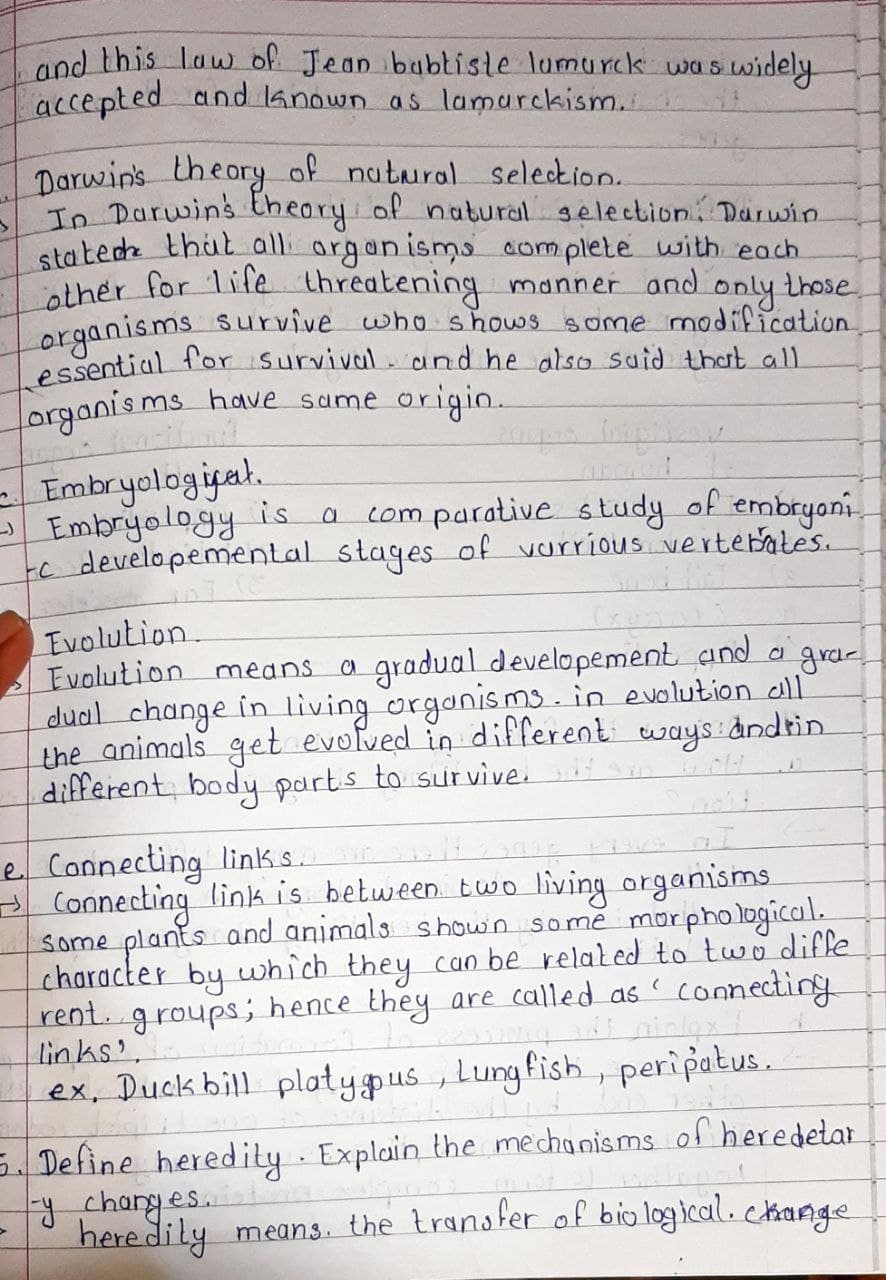 and this law of Jean babtiste lamarck was widely
accepted and known as lamarckism.
Darwin's theory of natural selection.
In Darwin's theory of natural selection. Darwin
stated that all organisms complete with each
other for life threatening manner and only those
organisms survive who shows some modification
essential for survival. and he also said that all
organisms have same origin.
c. Embryological.
→ Embryology is a comparative study of embryoni
-c developemental stages of varrious vertebrates.
Evolution.
Evolution means a gradual developement and a gra-
dual change in living organisms. in evolution all
the animals get evolved in different ways and in
different body parts to survive.
e. Connecting links.
→ Connecting link is between two living organisms
some plants and animals shown some morphological.
character by which they can be related to two diffe
rent. groups; hence they are called as ‘ connecting
links’.
ex. Duckbill platypus , Lungfish , peripatus.
5. Define heredity . Explain the mechanisms of heredetar
-y changes.
heredily means. the transfer of biological. change